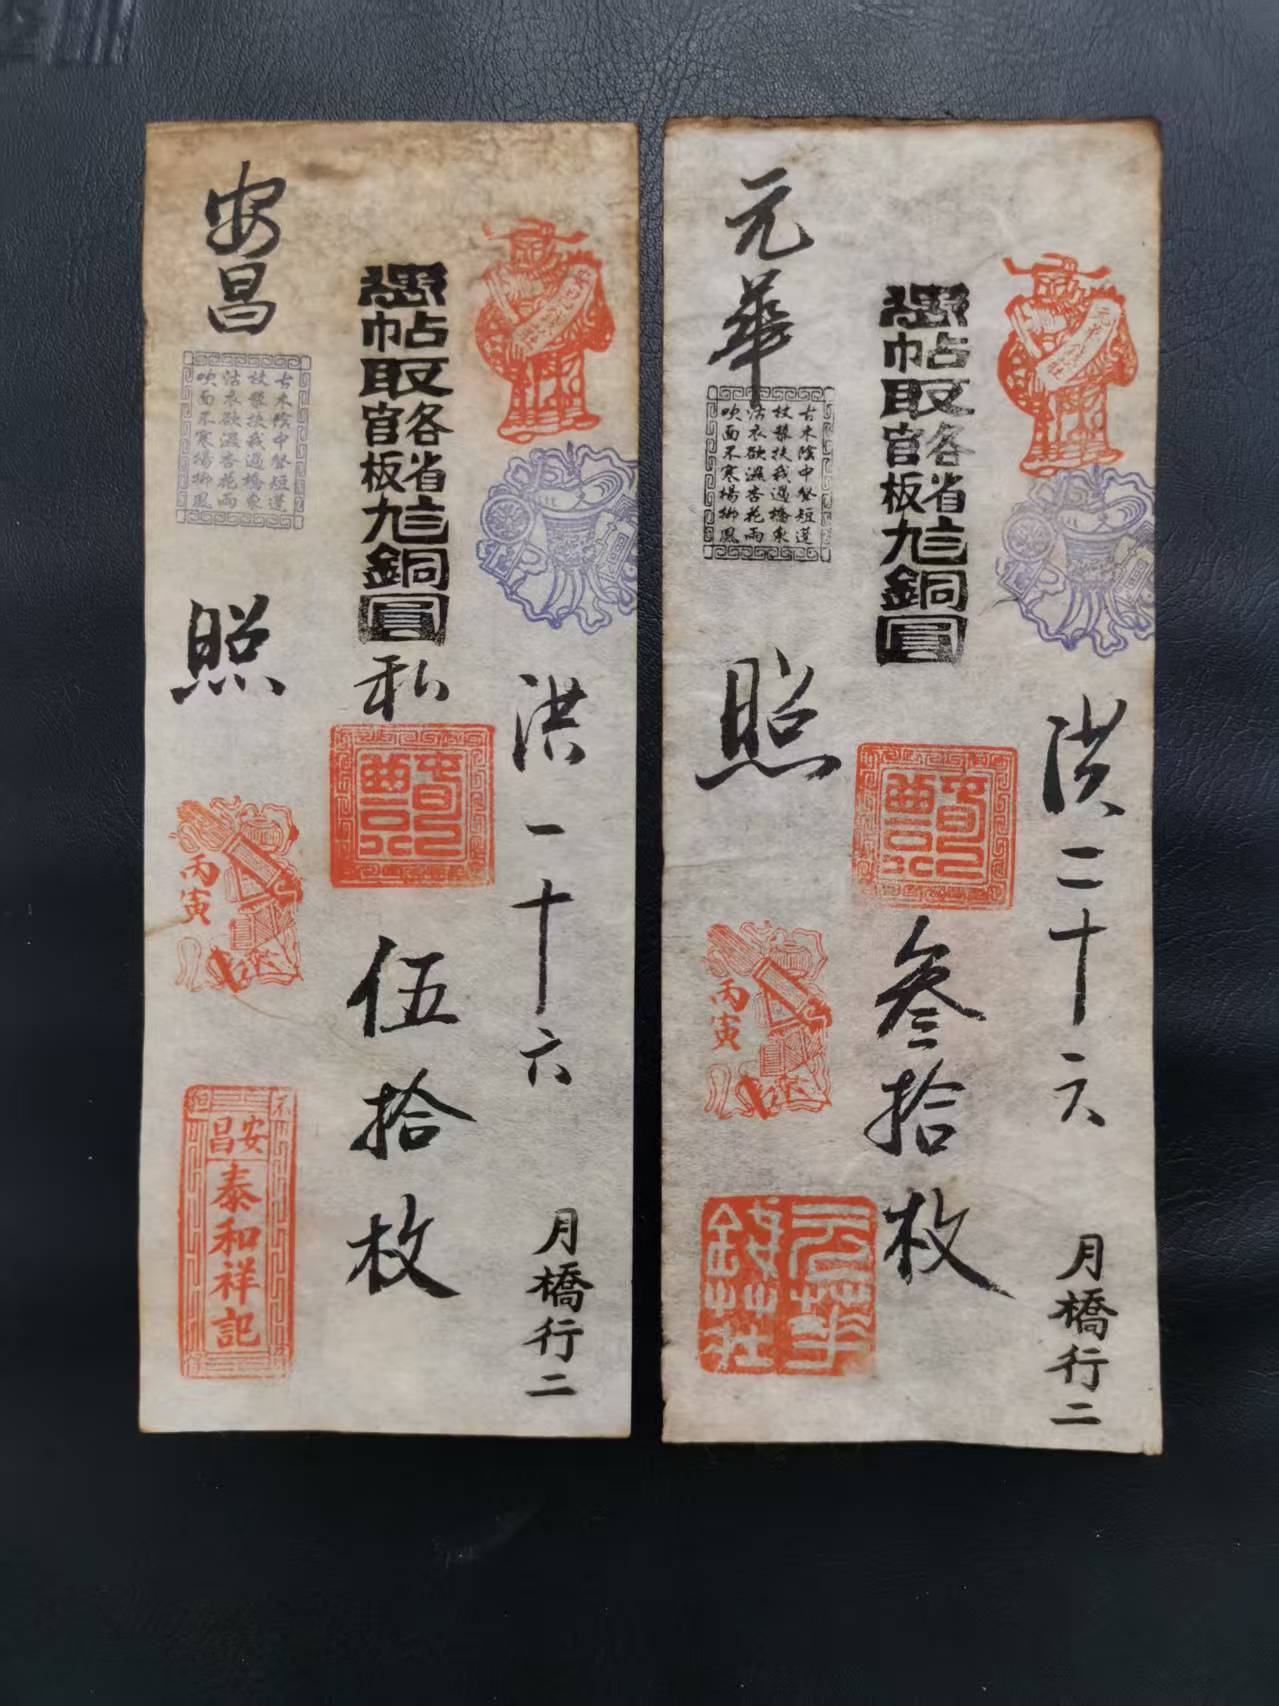 安昌
憑帖取各省官板九言銅圓
私
伍拾枚
洪一十六
月橋行二
照
古木陰中繫短篷
杖藜扶我過橋東
沾衣欲濕杏花雨
吹面不寒楊柳風
丙寅
不
但
安昌
泰和祥記
元華
憑帖取各省官板九言銅圓
叁拾枚
洪二十六
月橋行二
照
古木陰中繫短篷
杖藜扶我過橋東
沾衣欲濕杏花雨
吹面不寒楊柳風
丙寅
元華
錢莊